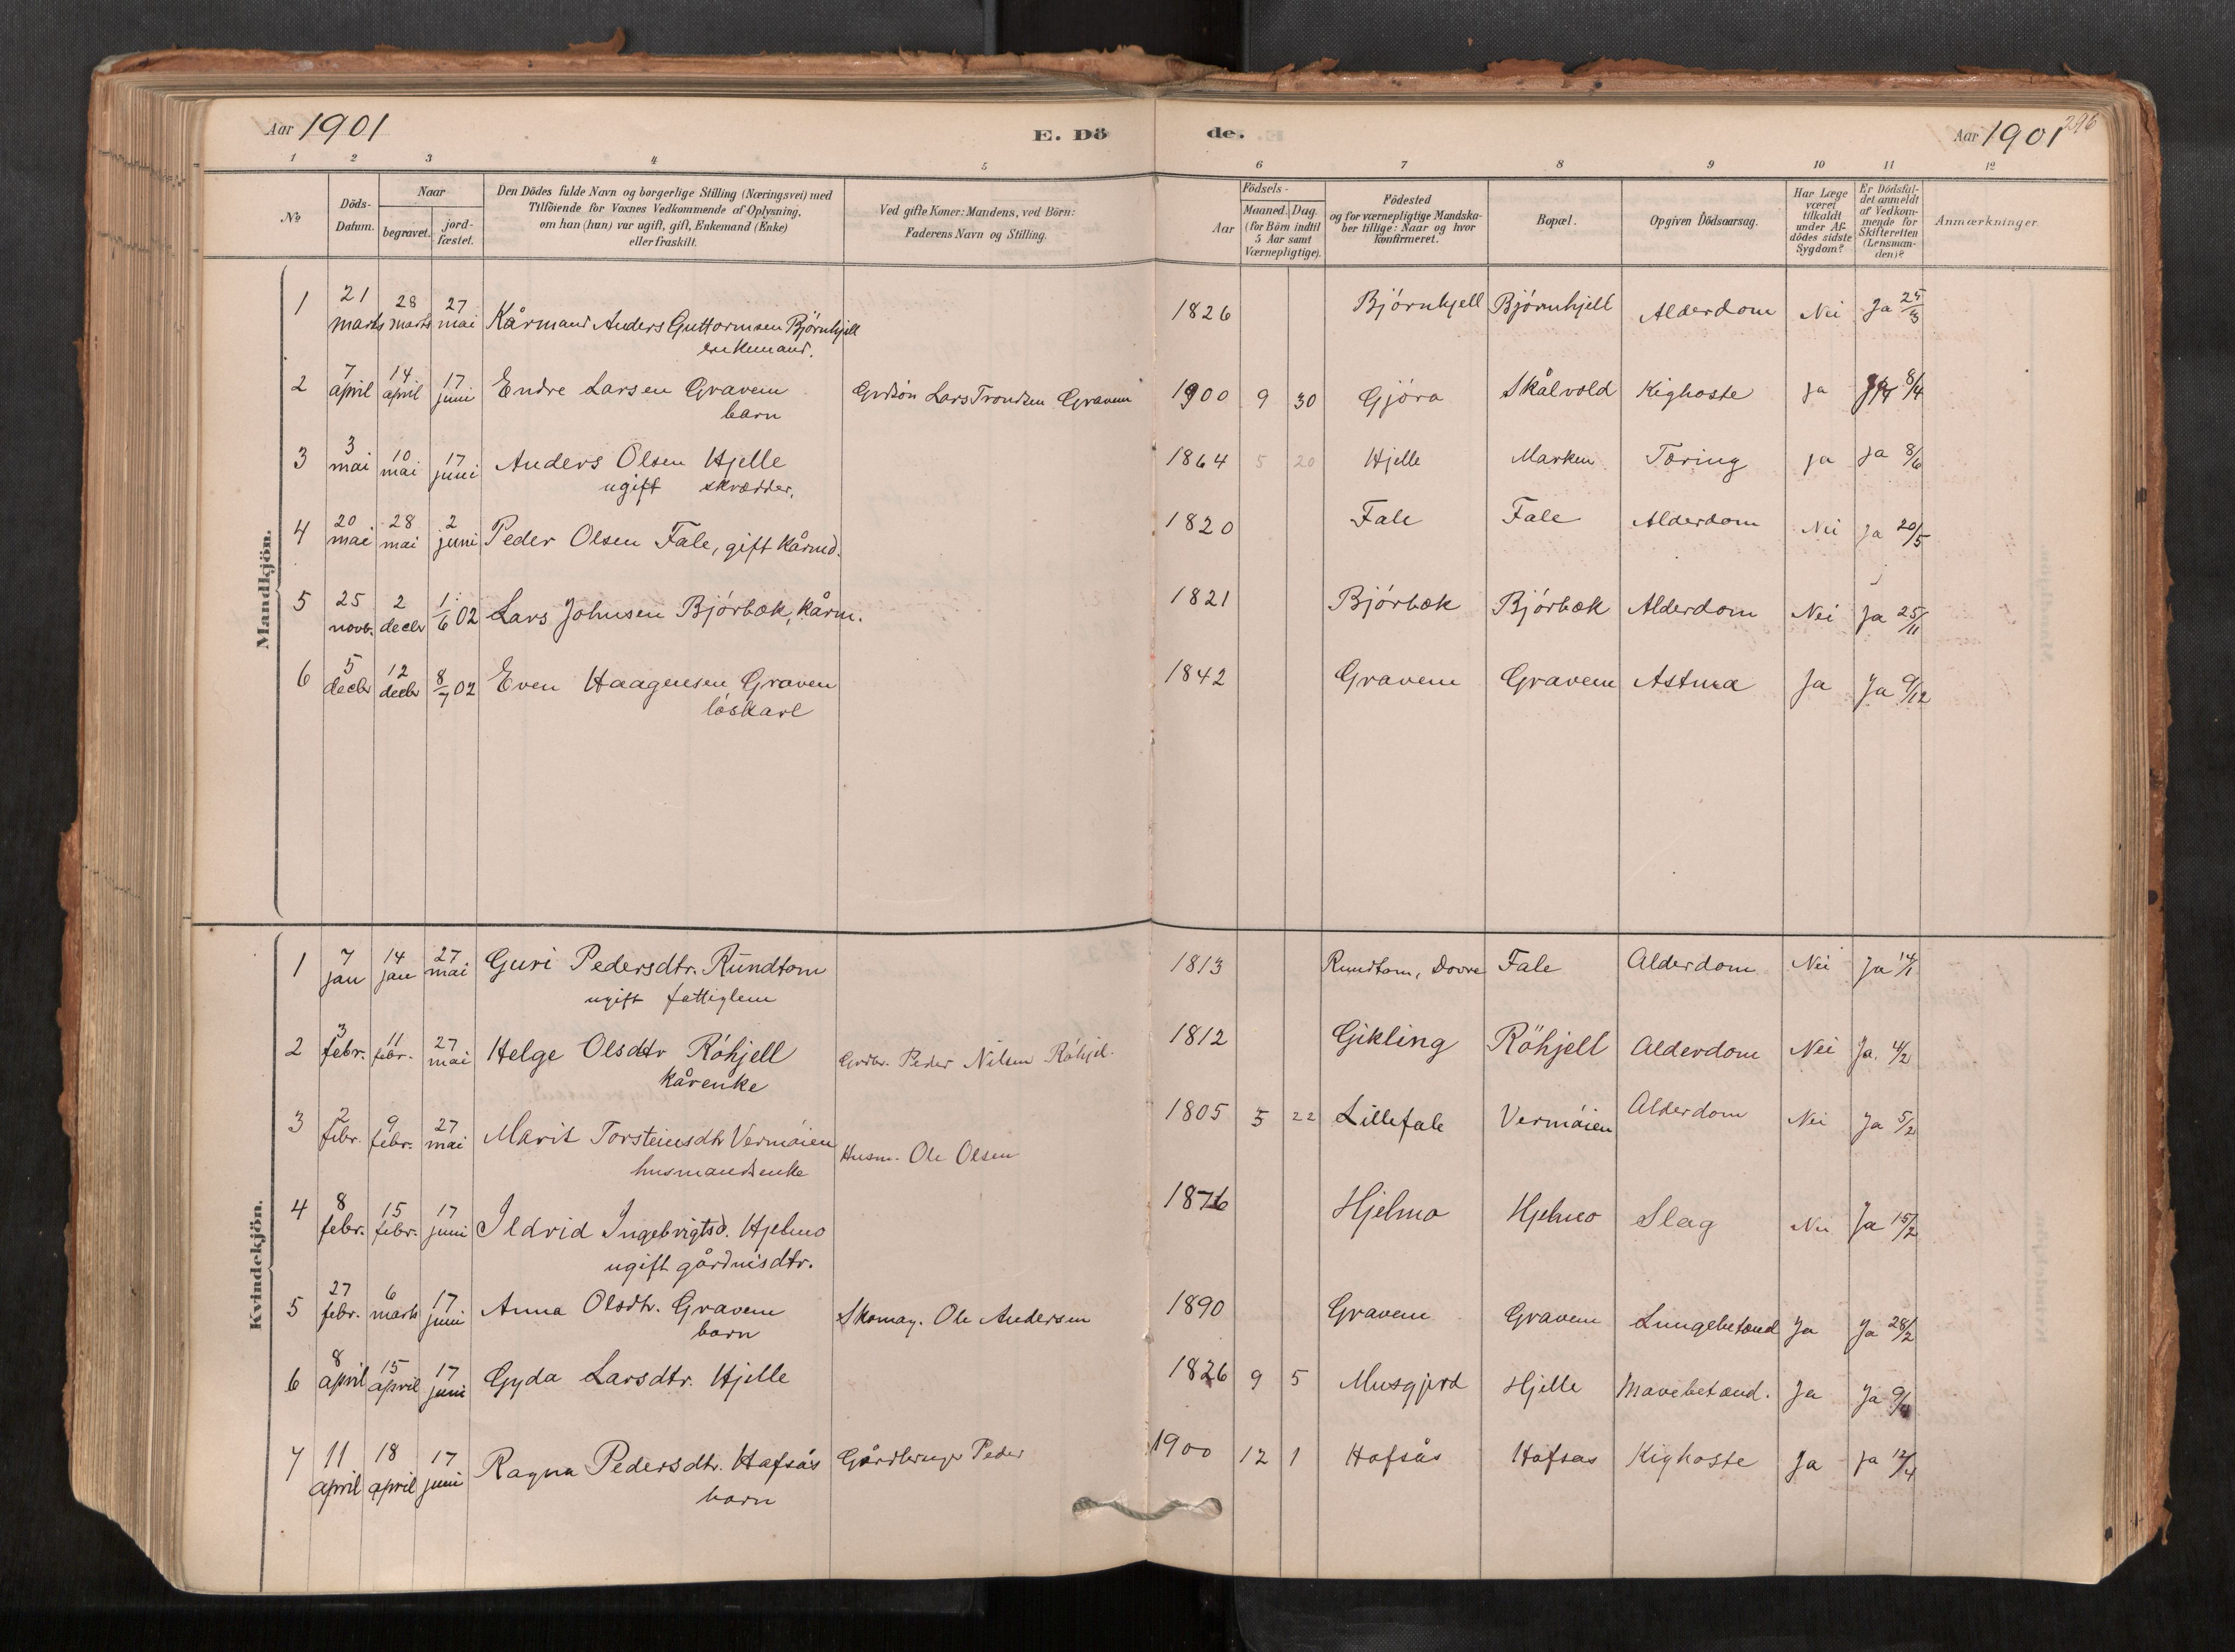 Aar 1901
E. Dö
de.
Aar 1901
296
1 2 3 4 5 6 7 8 9 10 11 12
No
Döds-
Datum.
Naar
begravet.
jord-
fæstet.
Den Dödes fulde Navn og borgerlige Stilling (Næringsvei) med
Tilföiende for Voxnes Vedkommende af Oplysning,
om han (hun) var ugift, gift, Enkemand (Enke)
eller fraskilt.
Ved gifte Koner: Mandens, ved Börn:
Faderens Navn og Stilling.
Aar
Födsels-
Maaned. Dag.
(for Börn indtil
5 Aar samt
Værnepligtige).
Födested
og for værnepligtige Mandska-
ber tillige: Naar og hvor
konfirmeret.
Bopæl.
Opgiven Dödsaarsag.
Har Læge
været
tilkaldt
under Af-
dödes sidste
Sygdom?
Er Dödsfal-
det anmeldt
af Vedkom-
mende for
Skifteretten
(Lensman-
den)?
Anmærkninger.
Mandkjön.
1 21 marts 28 marts 27 mai Kårmand Anders Guttormsen Björnhjell 1826 Björnhjell Björnhjell Alderdom Nei Ja 25/3
enkemand.
2 7 april 14 april 17 juni Endre Larsen Gravem Grdsön Lars Trondsen Gravem 1900 9 30 Gjöra Skålvold Kighoste Ja Ja 8/4
barn
3 3 mai 10 mai 17 juni Anders Olsen Hjelle 1864 5 20 Hjelle Marken Tæring Ja Ja 8/6
ugift skrædder.
4 20 mai 28 mai 2 juni Peder Olsen Fale, gift kårmd. 1820 Fale Fale Alderdom Nei Ja 20/5
5 25 novb. 2 decbr 1/6 02 Lars Johnsen Björbæk, kårm. 1821 Björbæk Björbæk Alderdom Nei Ja 25/11
6 5 decbr 12 decbr 8/7 02 Even Haagensen Graven 1842 Gravem Gravem Astma Ja Ja 9/12
löskarl
Kvindekjön.
1 7 jan 14 jan 27 mai Guri Pedersdtr. Rundtom 1813 Rundtom, Dovre Fale Alderdom Nei Ja 14/1
ugift fattiglem
2 3 febr. 11 febr. 27 mai Helge Olsdtr Röhjell Grdbr. Peder Nilsen Röhjel. 1812 Gikling Röhjell Alderdom Nei Ja. 4/2
kårenke
3 2 febr. 9 febr. 27 mai Marit Torsteinsdtr Vermöien Husm. Ole Olsen 1805 5 22 Lillefale Vermöien Alderdom Nei Ja 5/2
husmandsenke
4 8 febr. 15 febr. 17 juni Ildrid Ingebrigtsd. Hjelmo 1876 Hjelmo Hjelmo Slag Nei Ja 15/2
ugift gårdmsdtr.
5 27 febr. 6 marts 17 juni Anna Olsdtr. Gravem Skomag. Ole Andersen 1890 Gravem Gravem Lungebetænd Ja Ja 28/2
barn
6 8 april 15 april 17 juni Gyda Larsdtr. Hjelle 1826 9 5 Musgjerd Hjelle Mavebetænd. Ja Ja 9/4
7 11 april 18 april 17 juni Ragna Pedersdtr. Hafsås Gårdbruger Peder 1900 12 1 Hafsås Hafsas Kighoste Ja Ja 12/4
barn